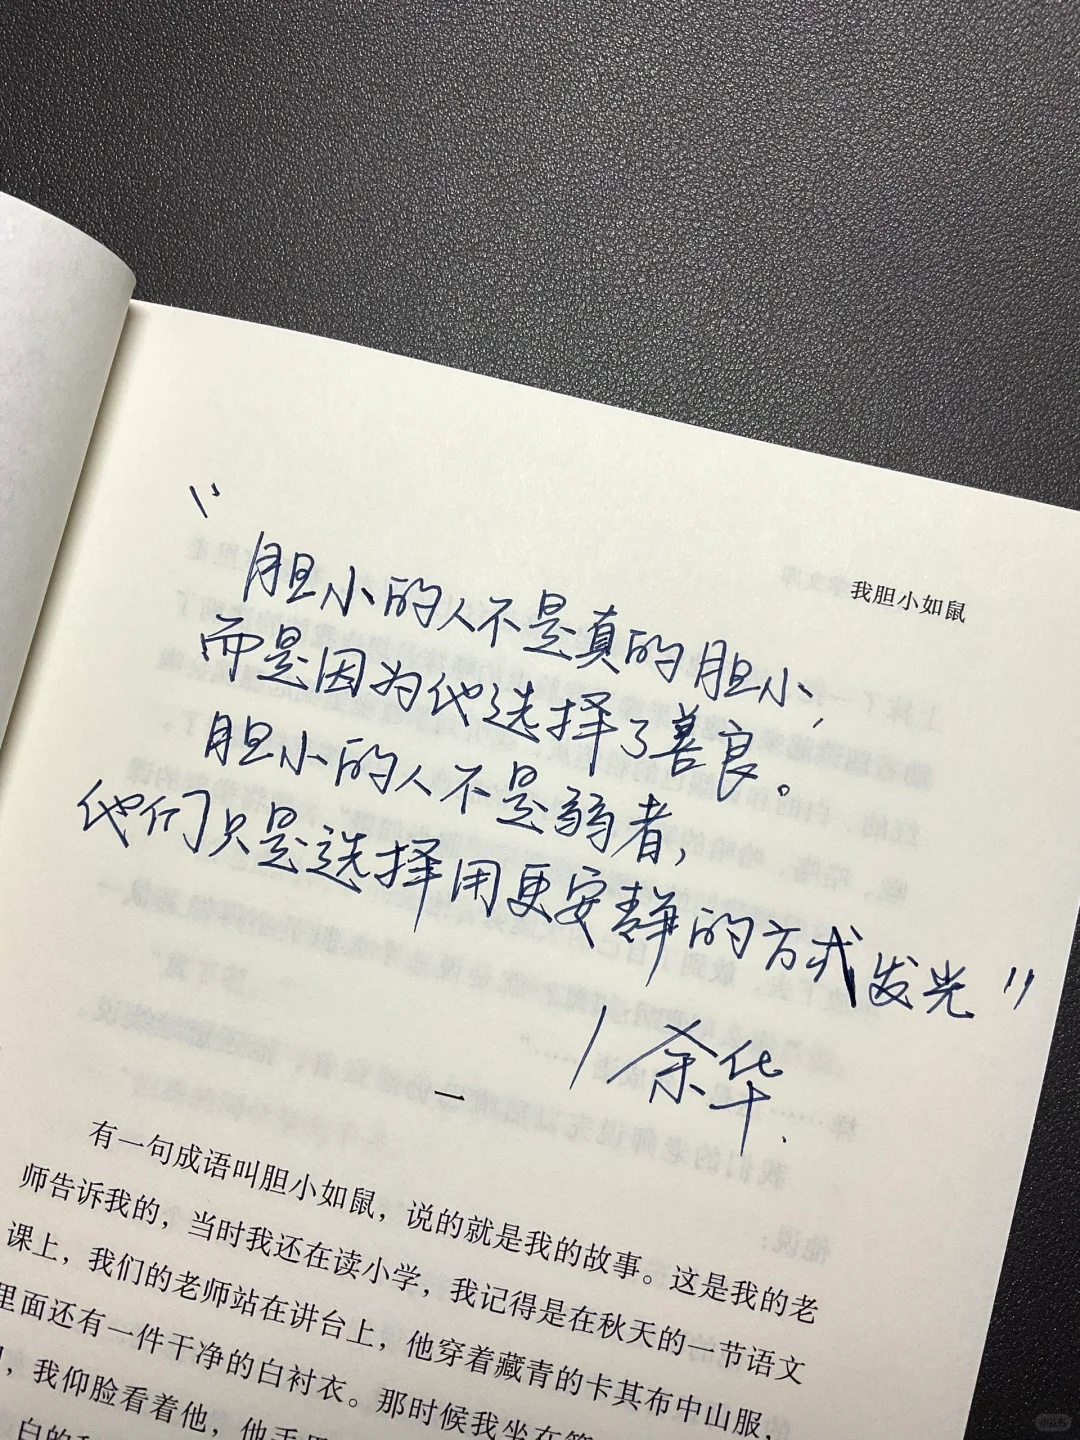 我胆小如鼠
“胆小的人不是真的胆小,
而是因为他选择了善良。
胆小的人不是弱者,
他们只是选择用更安静的方式发光”
/余华.
一
有一句成语叫胆小如鼠，说的就是我的故事。这是我的老
师告诉我的，当时我还在读小学，我记得是在秋天的一节语文
课上，我们的老师站在讲台上，他穿着藏青的卡其布中山服，
里面还有一件干净的白衬衣。那时候我坐在第
，我仰脸看着他，他手里
小红书